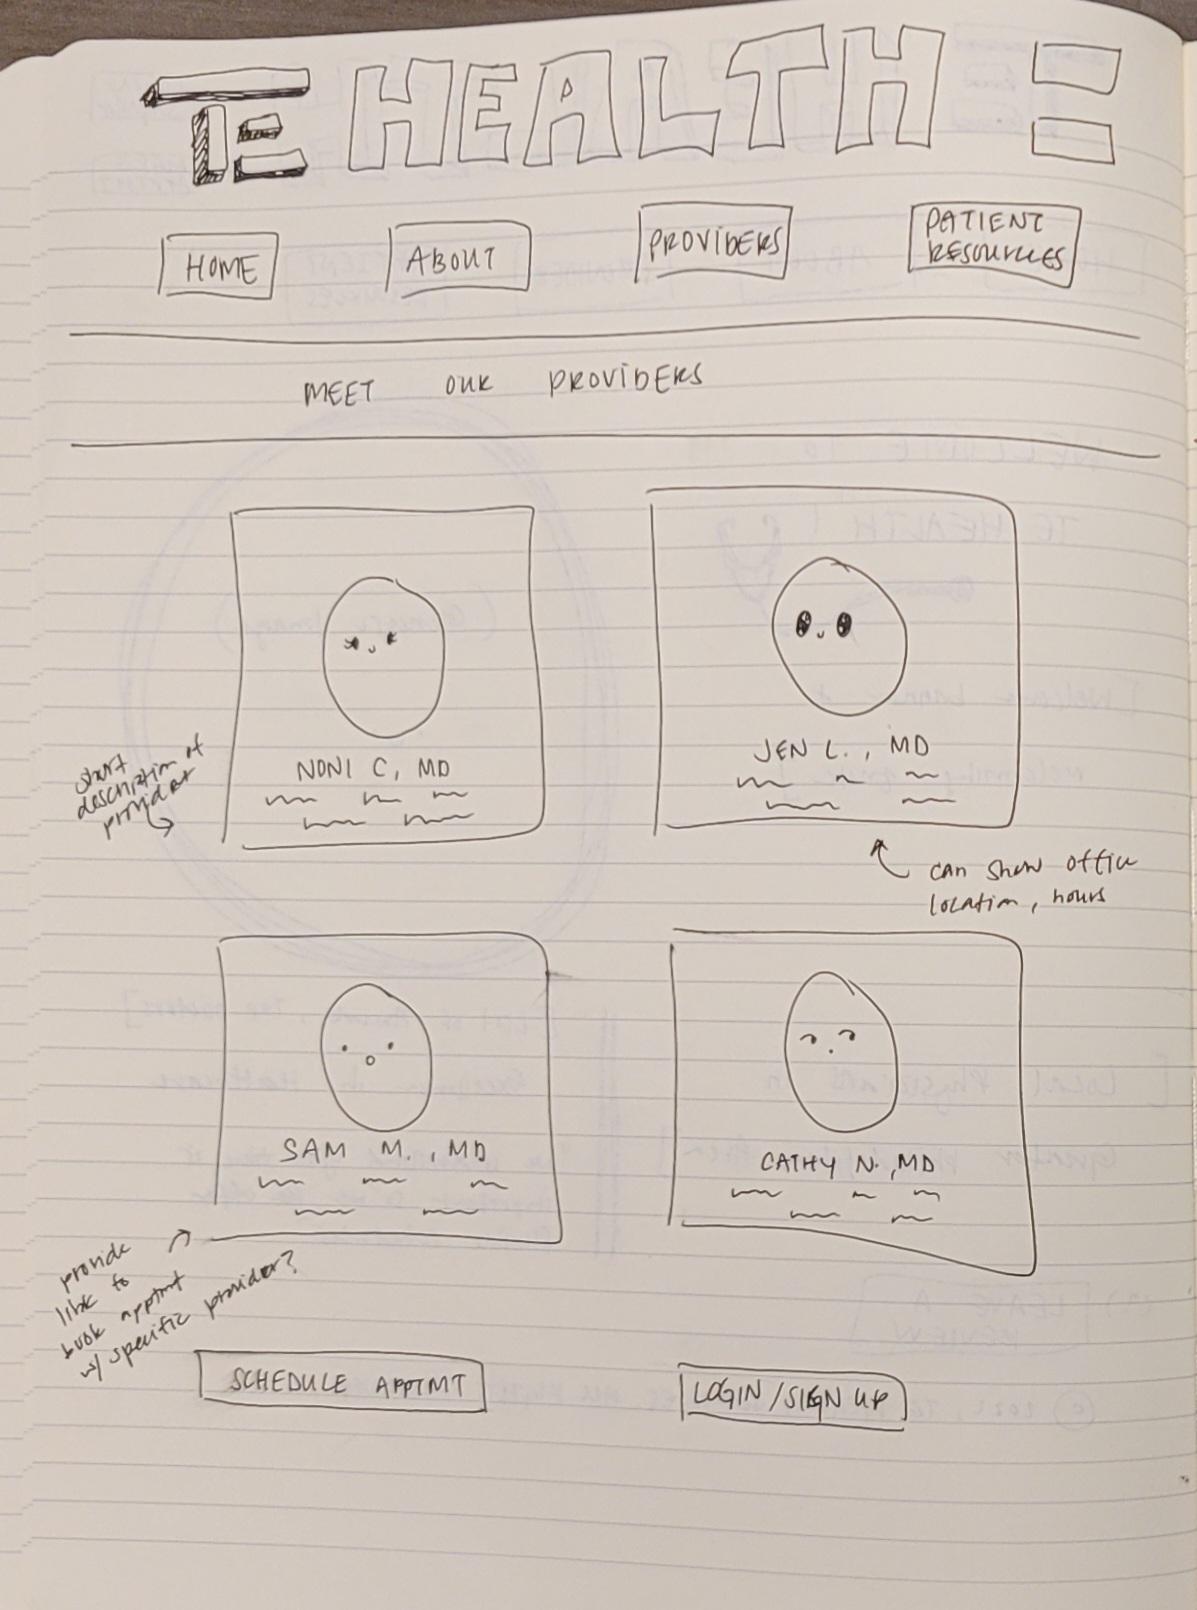 TE HEALTH
HOME
ABOUT
PROVIDERS
PATIENT
RESOURCES
MEET OUR PROVIDERS
NONI C, MD
JEN L., MD
start
description of
provider
can show office
location, hours
SAM M., MD
CATHY N., MD
provide
link to
book apptmt
w/ specific provider?
SCHEDULE APPTMT
LOGIN/SIGN UP